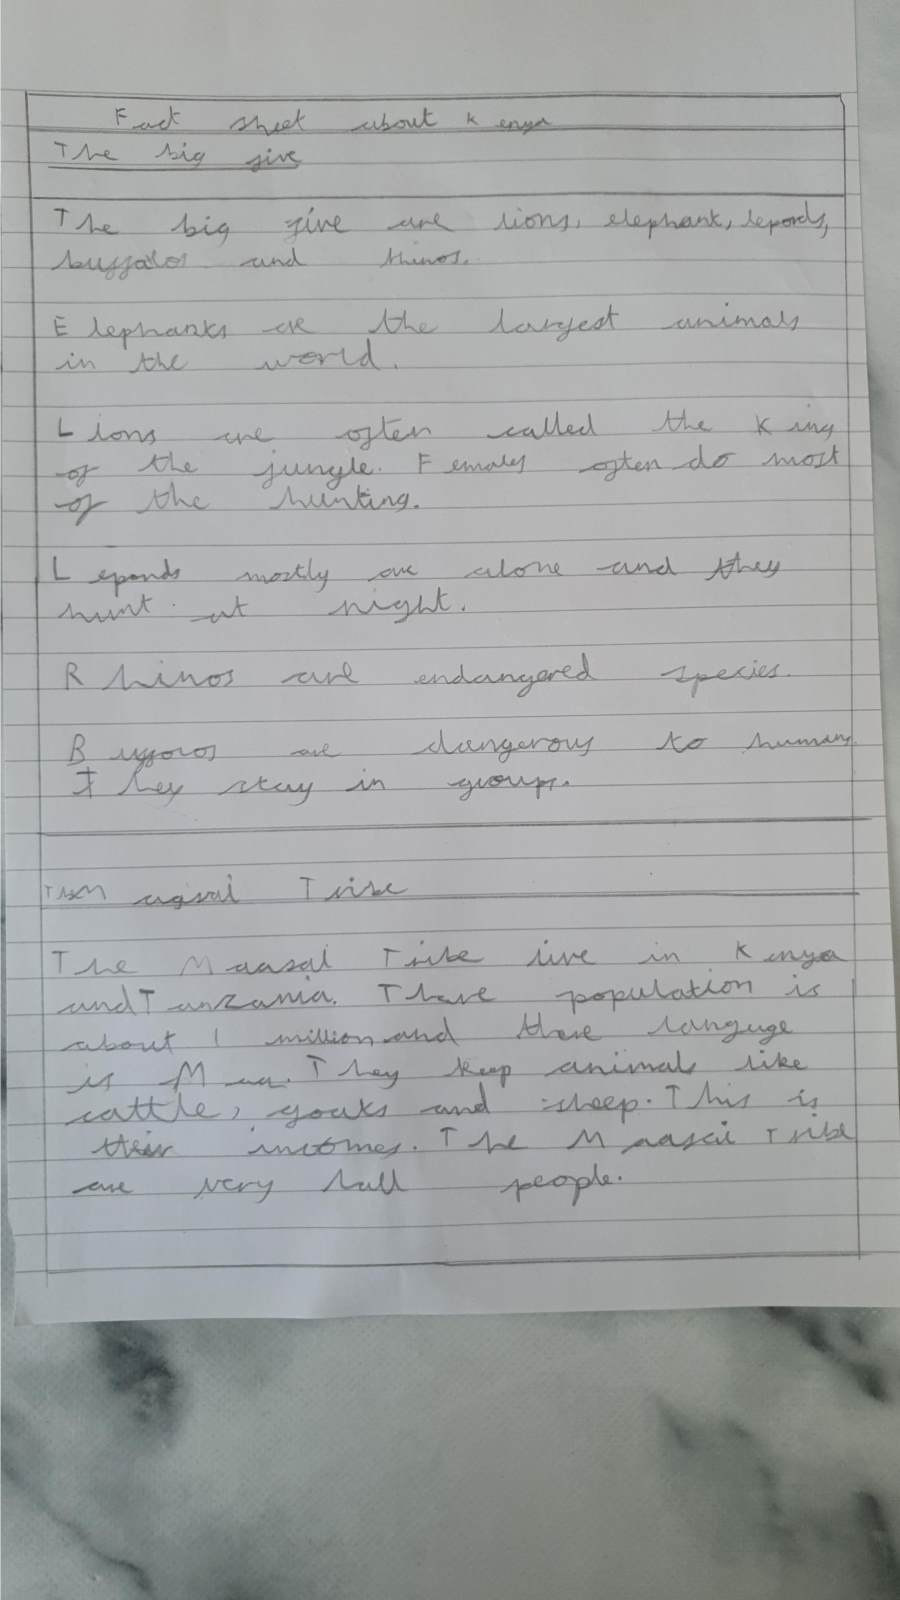 Fact sheet about Kenya
The big five
The big five are lions, elephants, lepords,
buffalos and rhinos.
Elephants are the largest animals
in the world.
Lions are often called the King
of the jungle. Females often do most
of the hunting.
Lepords mostly are alone and they
hunt at night.
Rhinos are endangered species.
Buffalos are dangerous to humans.
They stay in groups.
The Maasai Tribe
The Maasai Tribe live in Kenya
and Tanzania. There population is
about 1 million and there languge
is Maa. They keep animals like
cattle, goats and sheep. This is
their incomes. The Maasai Tribe
are very tall people.